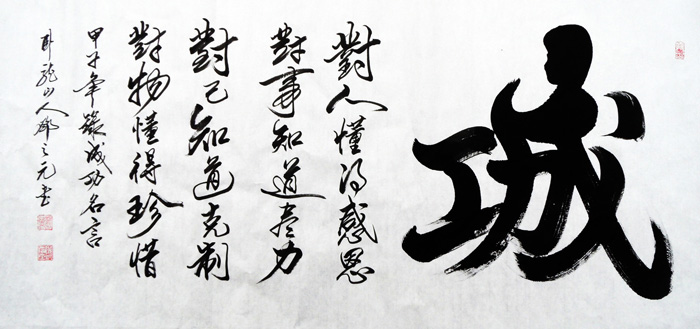 成功
對人懂得感恩
對事知道尽力
對己知道克制
對物懂得珍惜
甲午年錄成功名言
卧龍山人鄭之元書